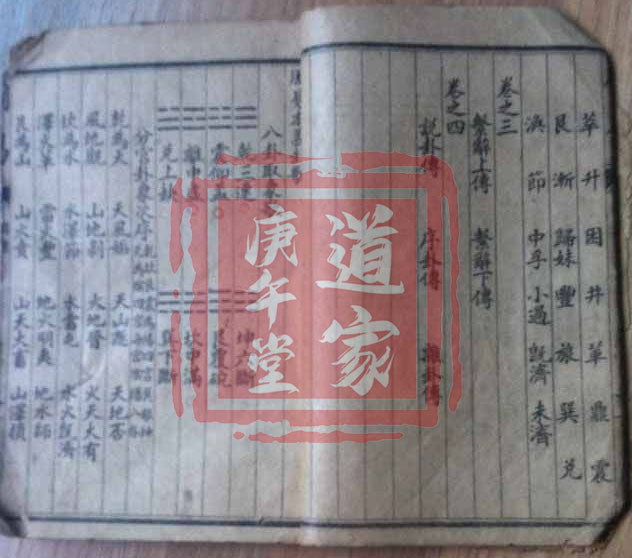 萃 升 困 井 革 鼎 震
艮 漸 歸妹 豐 旅 巽 兑
渙 節 中孚 小過 既濟 未濟
卷之三
繫辭上傳 繫辭下傳
卷之四
説卦傳 序卦傳 雜卦傳
八卦取象
乾三連 坤六斷
震仰盂 艮覆碗
離中虛 坎中滿
兑上缺 巽下斷
乾為天 天風姤 天山遯 天地否
風地觀 山地剝 火地晉 火天大有
坎為水 水澤節 水雷屯 水火既濟
澤火革 雷火豐 地火明夷 地水師
艮為山 山火賁 山天大畜 山澤損
道家
庚午堂